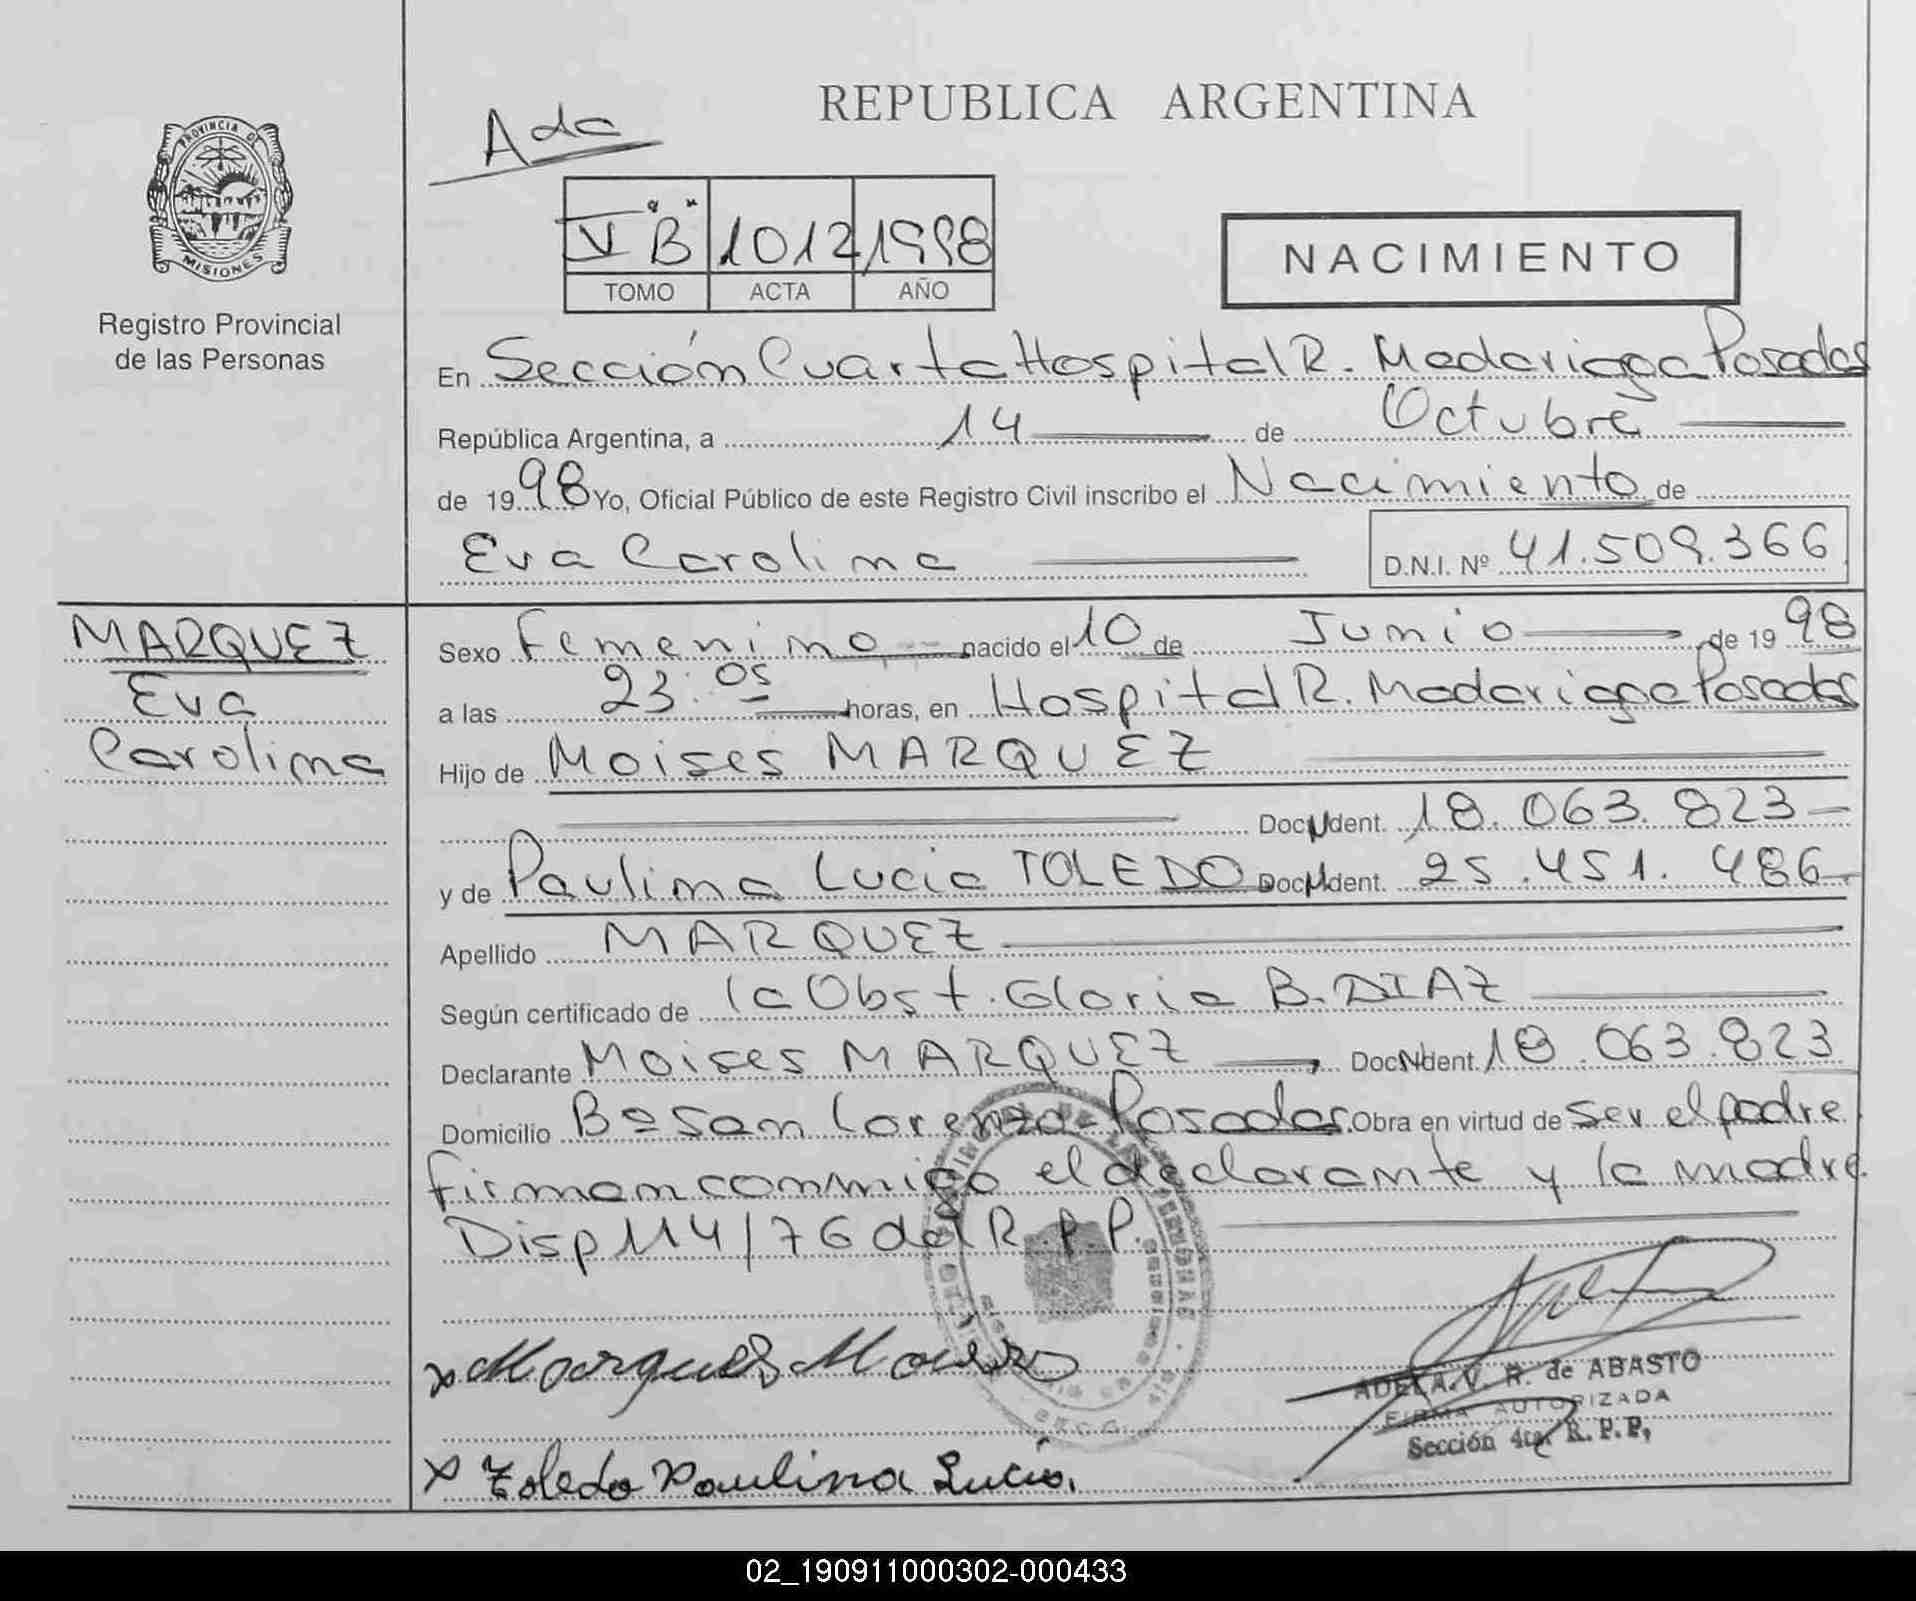 REPUBLICA ARGENTINA
Ada
PROVINCIA DE
MISIONES
Registro Provincial
de las Personas
V "B" 1012 1998
TOMO ACTA AÑO
NACIMIENTO
En Sección Cuarta Hospital R. Madariaga Posadas
República Argentina, a 14 de Octubre
de 1998 Yo, Oficial Público de este Registro Civil inscribo el Nacimiento de
Eva Carolina D.N.I. Nº 41.509.366
MARQUEZ
Eva
Carolina
Sexo Femenino nacido el 10 de Junio de 1998
a las 23:05 horas, en Hospital R. Madariaga Posadas
Hijo de Moises MARQUEZ
Doc N dent. 18.063.823
y de Paulina Lucia TOLEDO Doc N dent. 25.451.486
Apellido MARQUEZ
Según certificado de la Obst. Gloria B. DIAZ
Declarante Moises MARQUEZ Doc N dent. 18.063.823
Domicilio Bº San Lorenzo Posadas. Obra en virtud de ser el padre
firman conmigo el declarante y la madre
Disp 114/76 del R.P.P.
x Marques Moises
ADELA V. R. de ABASTO
FIRMA AUTORIZADA
Sección 4ta. R.P.P.
x Toledo Paulina Lucia.
02_190911000302-000433